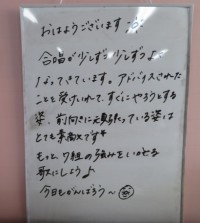 おはようございます
合唱が少しずつ少しずつよく
なってきています。アドバイスされた
ことを受けいれて、すぐにやろうとする
姿、前向きに元気に歌っている姿は
とても素敵です
もっと、7組の強みをいかせる
歌にしよう♪
今日もがんばろう〜